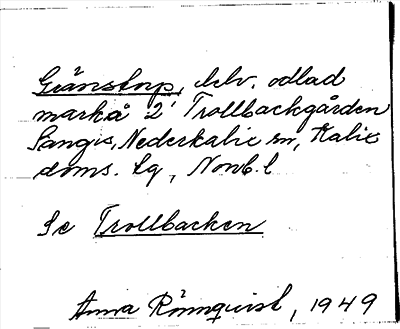 Gränstorp, delv. odlad
mark å 2' Trollbackgården
Sangis, Nederkalix sn, Kalix
doms. lg, Norrb. l
Se Trollbacken
Anna Rönnquist, 1949